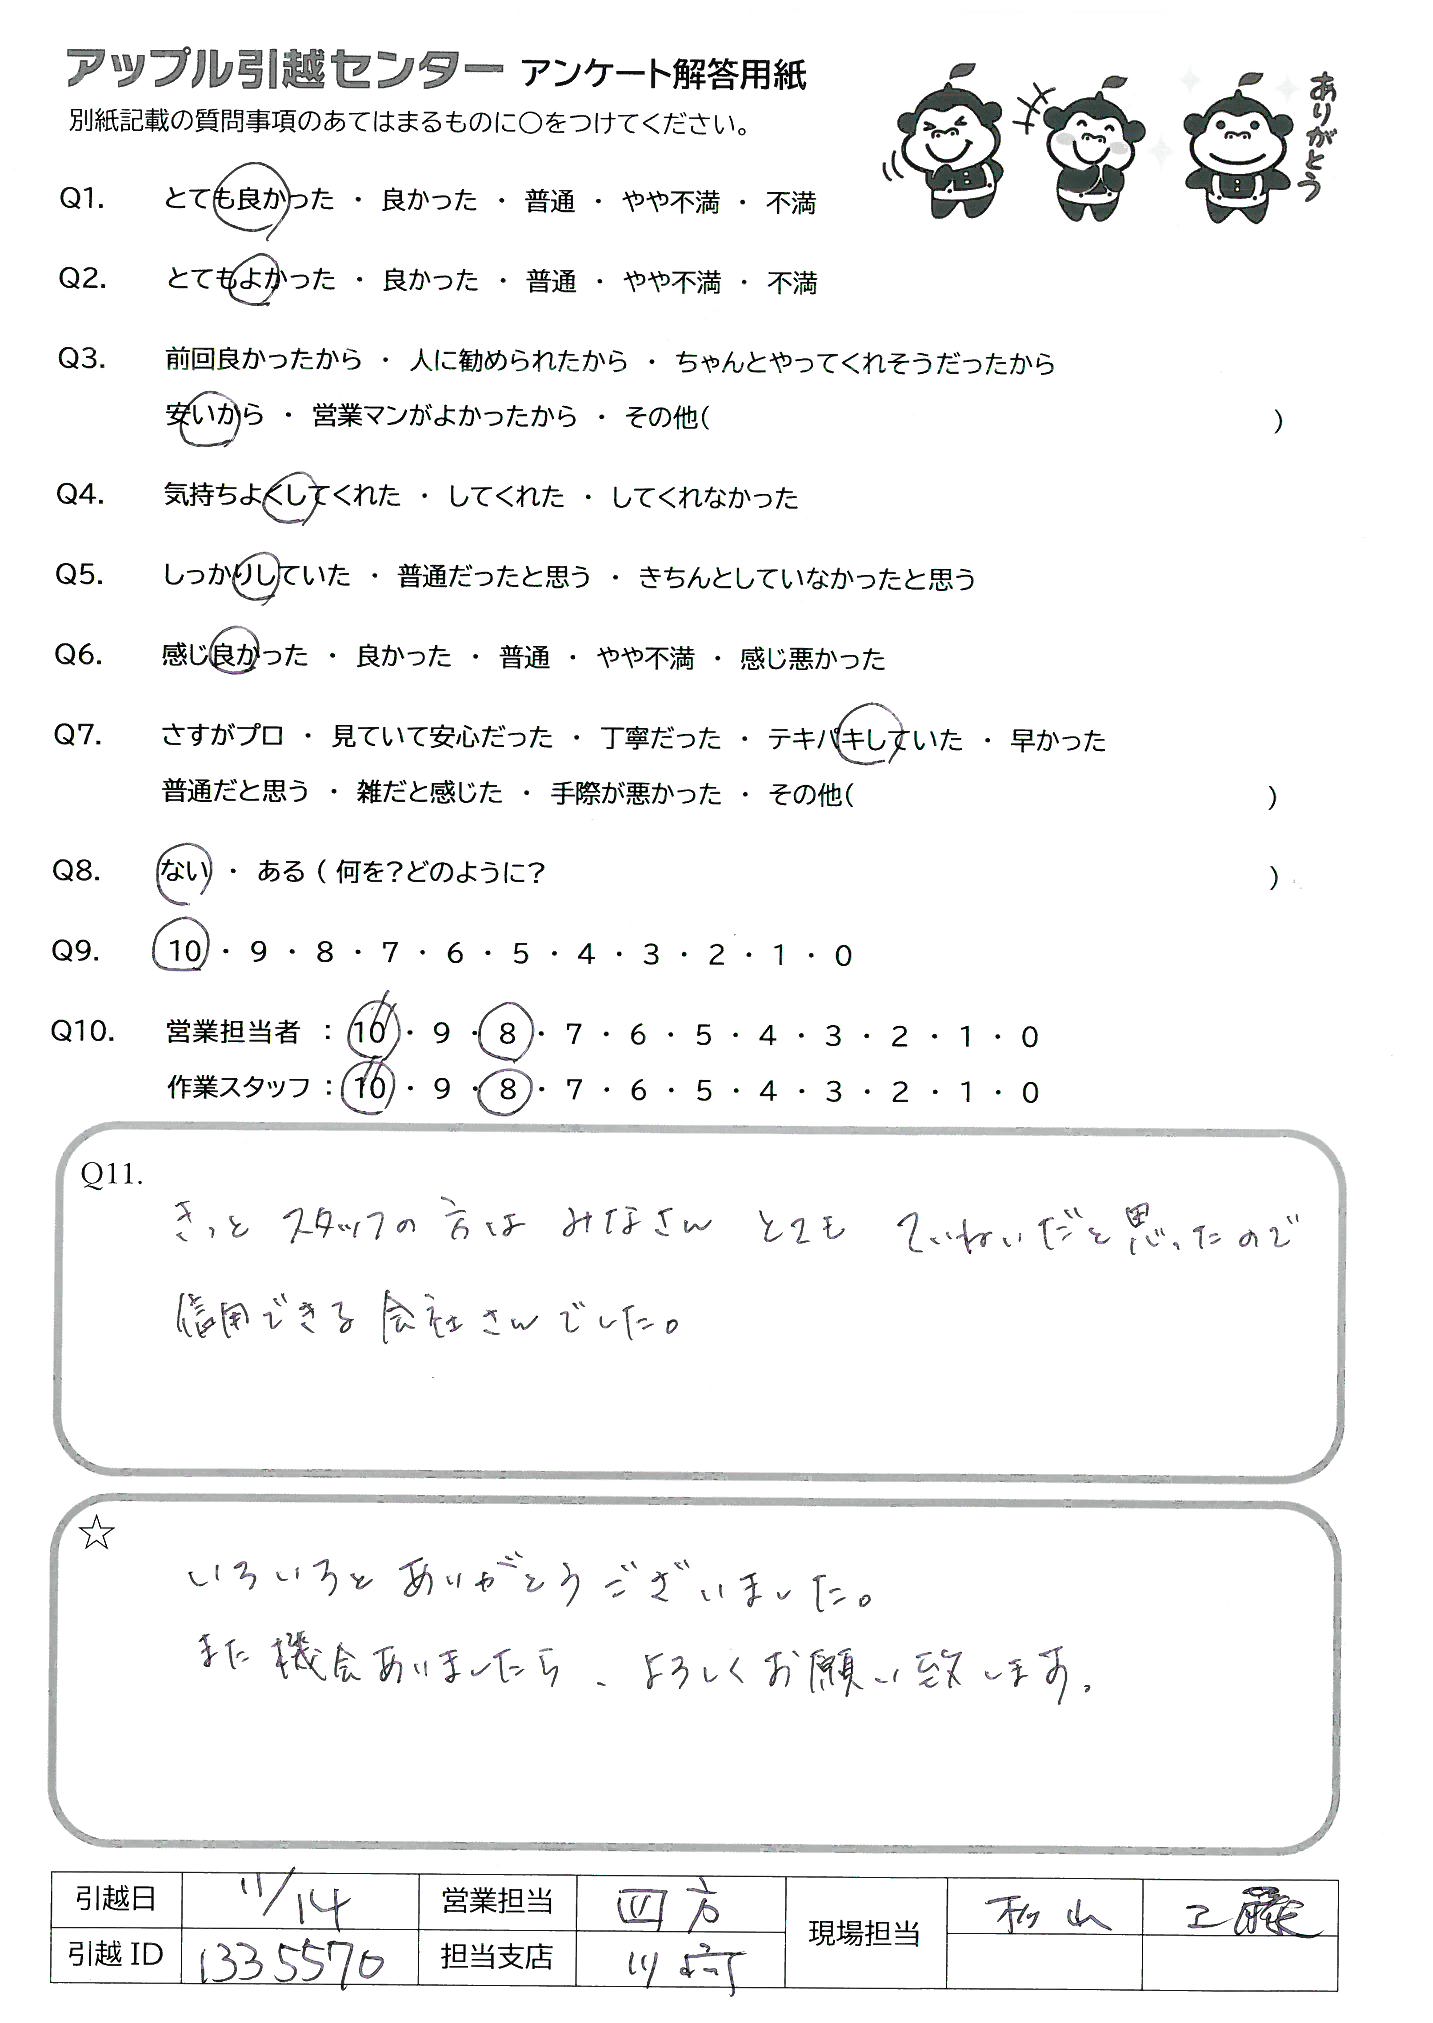 アップル引越センター アンケート解答用紙
別紙記載の質問事項のあてはまるものに○をつけてください。
ありがとう
Q1. とても良かった ・ 良かった ・ 普通 ・ やや不満 ・ 不満
Q2. とてもよかった ・ 良かった ・ 普通 ・ やや不満 ・ 不満
Q3. 前回良かったから ・ 人に勧められたから ・ ちゃんとやってくれそうだったから
安いから ・ 営業マンがよかったから ・ その他( )
Q4. 気持ちよくしてくれた ・ してくれた ・ してくれなかった
Q5. しっかりしていた ・ 普通だったと思う ・ きちんとしていなかったと思う
Q6. 感じ良かった ・ 良かった ・ 普通 ・ やや不満 ・ 感じ悪かった
Q7. さすがプロ ・ 見ていて安心だった ・ 丁寧だった ・ テキパキしていた ・ 早かった
普通だと思う ・ 雑だと感じた ・ 手際が悪かった ・ その他( )
Q8. ない ・ ある ( 何を?どのように? )
Q9. 10 ・ 9 ・ 8 ・ 7 ・ 6 ・ 5 ・ 4 ・ 3 ・ 2 ・ 1 ・ 0
Q10. 営業担当者 : 10 ・ 9 ・ 8 ・ 7 ・ 6 ・ 5 ・ 4 ・ 3 ・ 2 ・ 1 ・ 0
作業スタッフ : 10 ・ 9 ・ 8 ・ 7 ・ 6 ・ 5 ・ 4 ・ 3 ・ 2 ・ 1 ・ 0
Q11.
きっと スタッフの方は みなさん とても ていねいだと思ったので
信用できる会社さんでした。
☆
いろいろとありがとうございました。
また機会ありましたら、よろしくお願い致します。
引越日 11/14 営業担当 四方 現場担当 松山 工藤
引越ID 1335570 担当支店 川崎